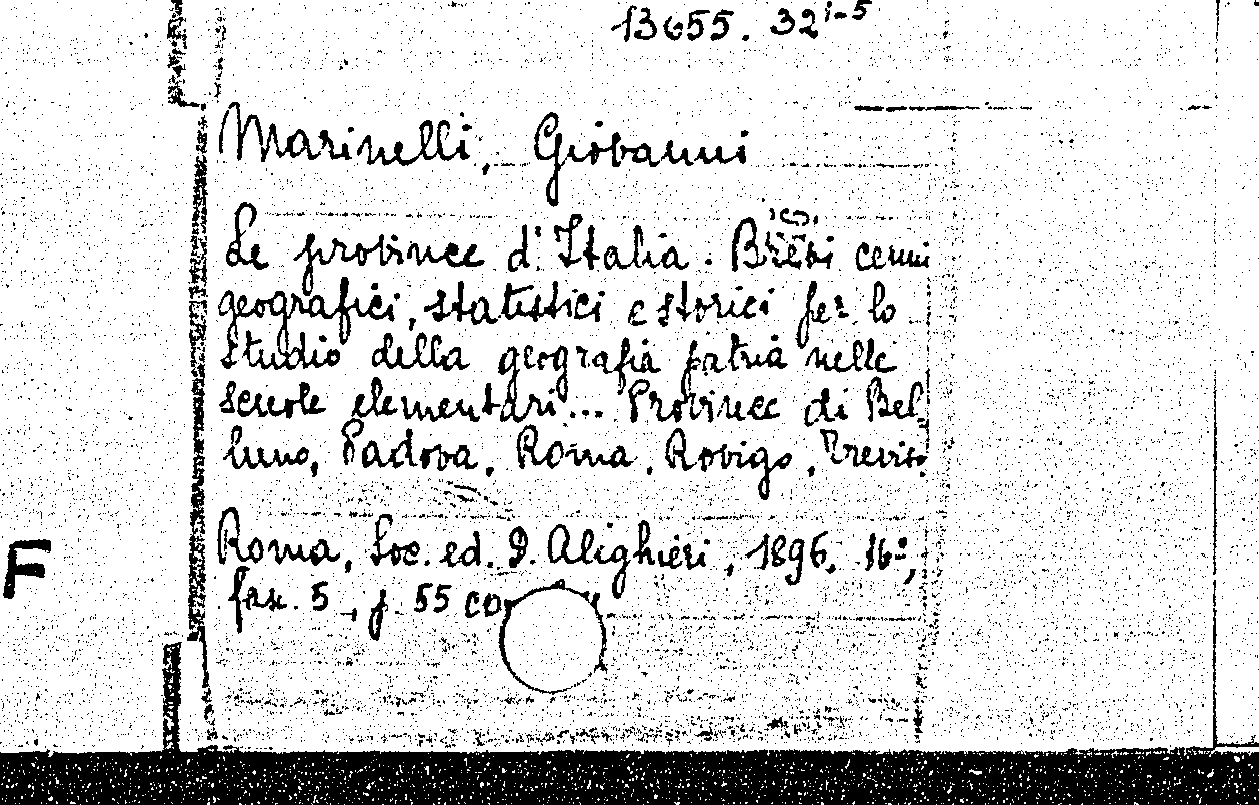 13655. 32 1-5
Marinelli, Giovanni
Le province d'Italia. Brevi cenni
geografici, statistici e storici per lo
studio della geografia patria nelle
scuole elementari... Province di Bel-
luno, Padova, Roma, Rovigo, Treviso.
Roma, Soc. ed. D. Alighieri, 1896, 16º,
fasc. 5, p. 55
F